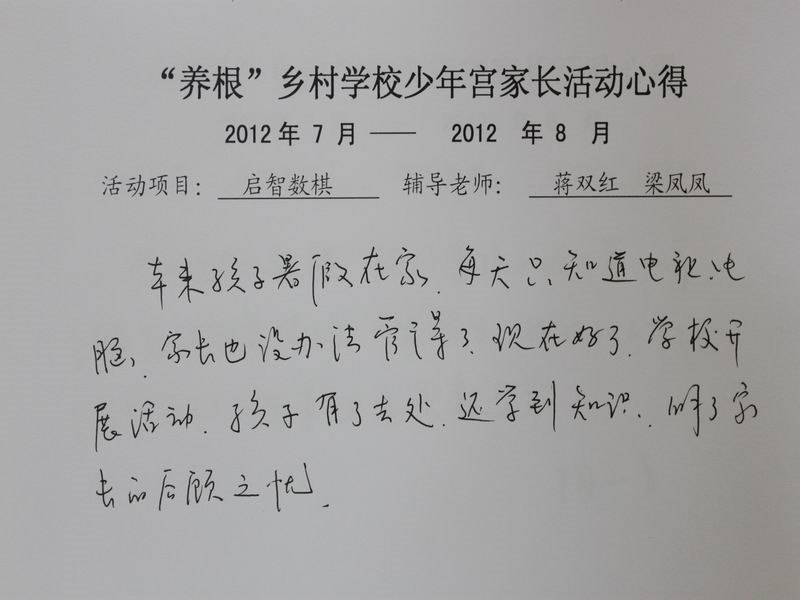 “养根”乡村学校少年宫家长活动心得
2012 年 7 月 —— 2012 年 8 月
活动项目： 启智数棋 辅导老师： 蒋双红 梁凤凤
本来孩子暑假在家，每天只知道电视、电
脑，家长也没办法管得了，现在好了，学校开
展活动，孩子有了去处，还学到知识，了家
长的后顾之忧。